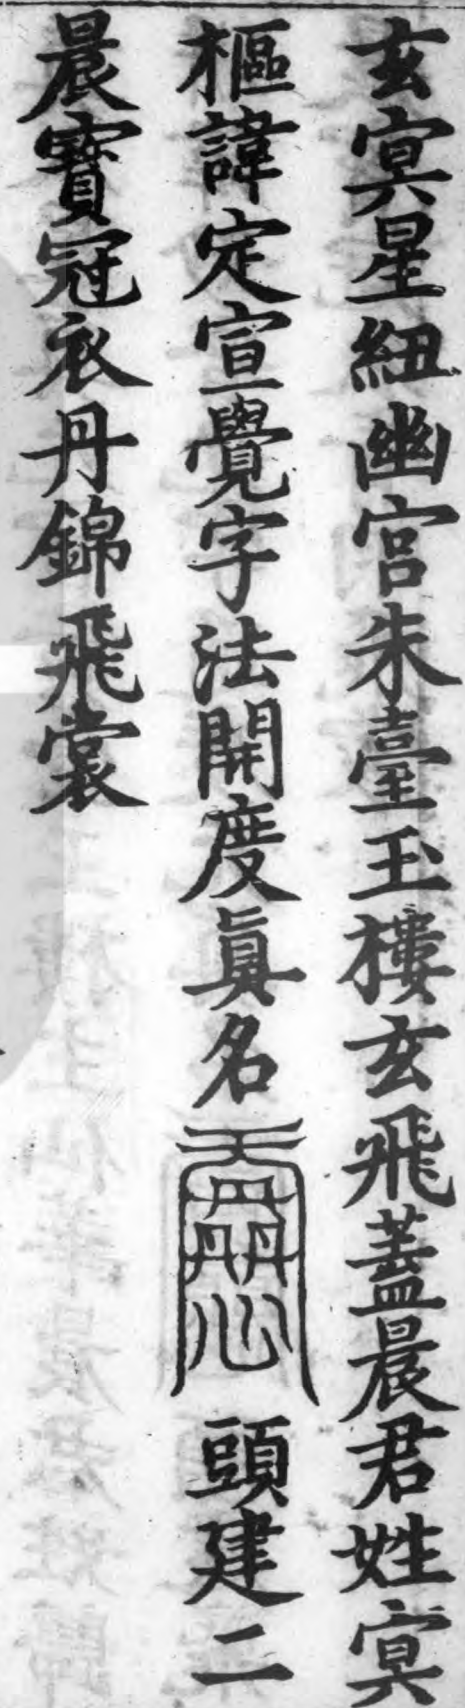 玄㝠星紐幽宮朱臺玉樓玄飛蓋晨君姓㝠
樞諱定宣覺字法開度眞名頭建二
晨寳冠衣丹錦飛裳